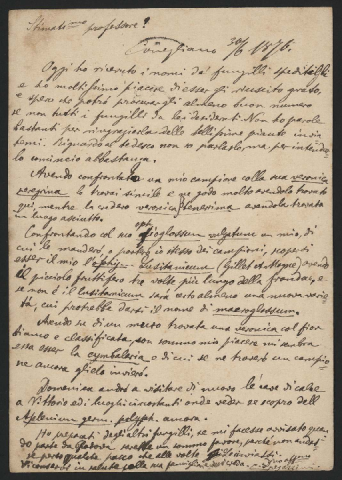 Stimatmo professore!
Conegliano 30/6 1876.
Oggi ho ricevuto i nomi da' funghilli speditile
e ho moltissimo piacere di essergli riuscito grato,
e spero che potrò procurargli almeno buon numero
se non tutti i funghilli da lei desiderati. Non ho parole
bastanti per ringraziarla delle bellissime piante invia
temi. Riguardo al tedesco non so parlarlo, ma per intender
lo comincio abbastanza.
Avendo confrontato un mio campione colla sua veronica
peregrina la trovai simile e ne godo molto avendola trovata
qui, mentre la credeva veronica tenerrima avendola trovata
in luogo asciutto.
Confrontando col suo ophioglossum vulgatum un mio, di
cui le manderò o porterò io stesso dei campioni, scopersi
esser il mio l'ophiog. Lusitanicum (Gillet et Magne) avendo
il picciolo fruttifero tre volte più lungo della fronda, e
se non è il lusitanicum sarà certo almeno una nuova varie
tà, cui potrebbe darsi il nome di macroglossum.
Avendo su di un muro trovata una veronica col fior
bianco e classificata, con sommo mio piacere mi sembra
essa esser la cymbalaria e di cui se ne trovo un campio
ne ancora glielo invierò.
Domenica andrò a visitare di nuovo le cave di calce
a Vittorio ed i luoghi circostanti onde veder se scopro dell'
Asplenium germ. polypt. ancora.
Ho preparati degli altri funghilli, se mi facesse avvisato quan
do parte da Padova, sarebbe un sommo favore, perché non andasse
se perso qualche pacco che alle volte gli inviassi.